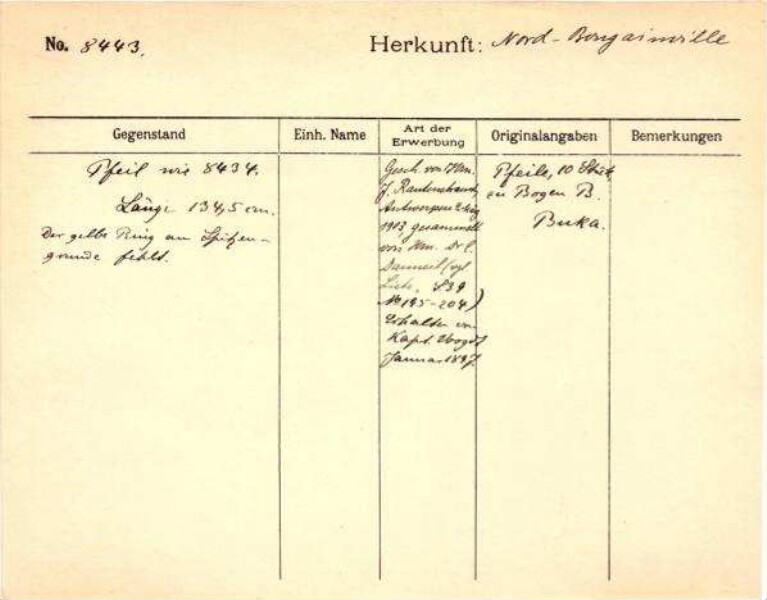 No. 8443.
Herkunft: Nord-Bougainville
Gegenstand
Einh. Name
Art der Erwerbung
Originalangaben
Bemerkungen
Pfeil wie 8434.
Länge 134,5 cm.
Der gelbe Ring am Spitzen-
grunde fehlt.
Gesch. von Hrn.
J. Rautenstrauch,
Antwerpen
1913, gesammelt
von Hrn. Dr C.
Danneil (vgl
Liste, S39
No 195-204)
Erhalten von
Kapt. Voogdt
Januar 1897.
Pfeile, 10 Stück
zu Bogen B.
Buka.